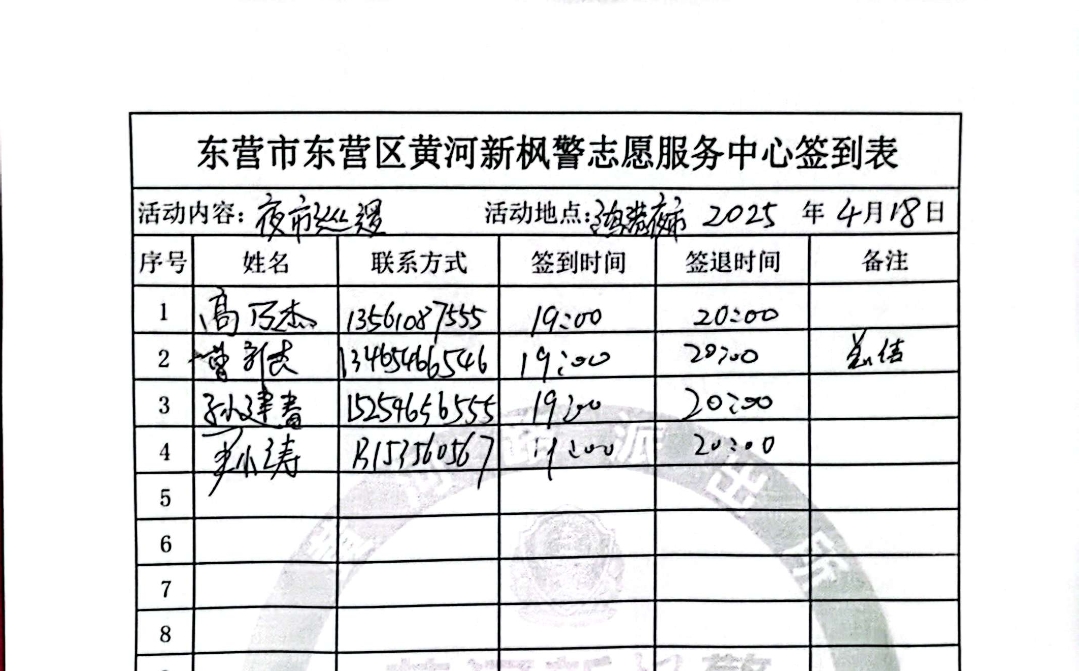 东营市东营区黄河新枫警志愿服务中心签到表
活动内容: 夜市巡逻 活动地点: 夜市 2025 年 4月18日
序号 姓名 联系方式 签到时间 签退时间 备注
1 高乃杰 13561087555 19:00 20:00
2 曾 13465466546 19:00 20:00
3 孙建春 15254656555 19:00 20:00
4 尹小涛 13153560567 19:00 20:00
5
6
7
8
派出所